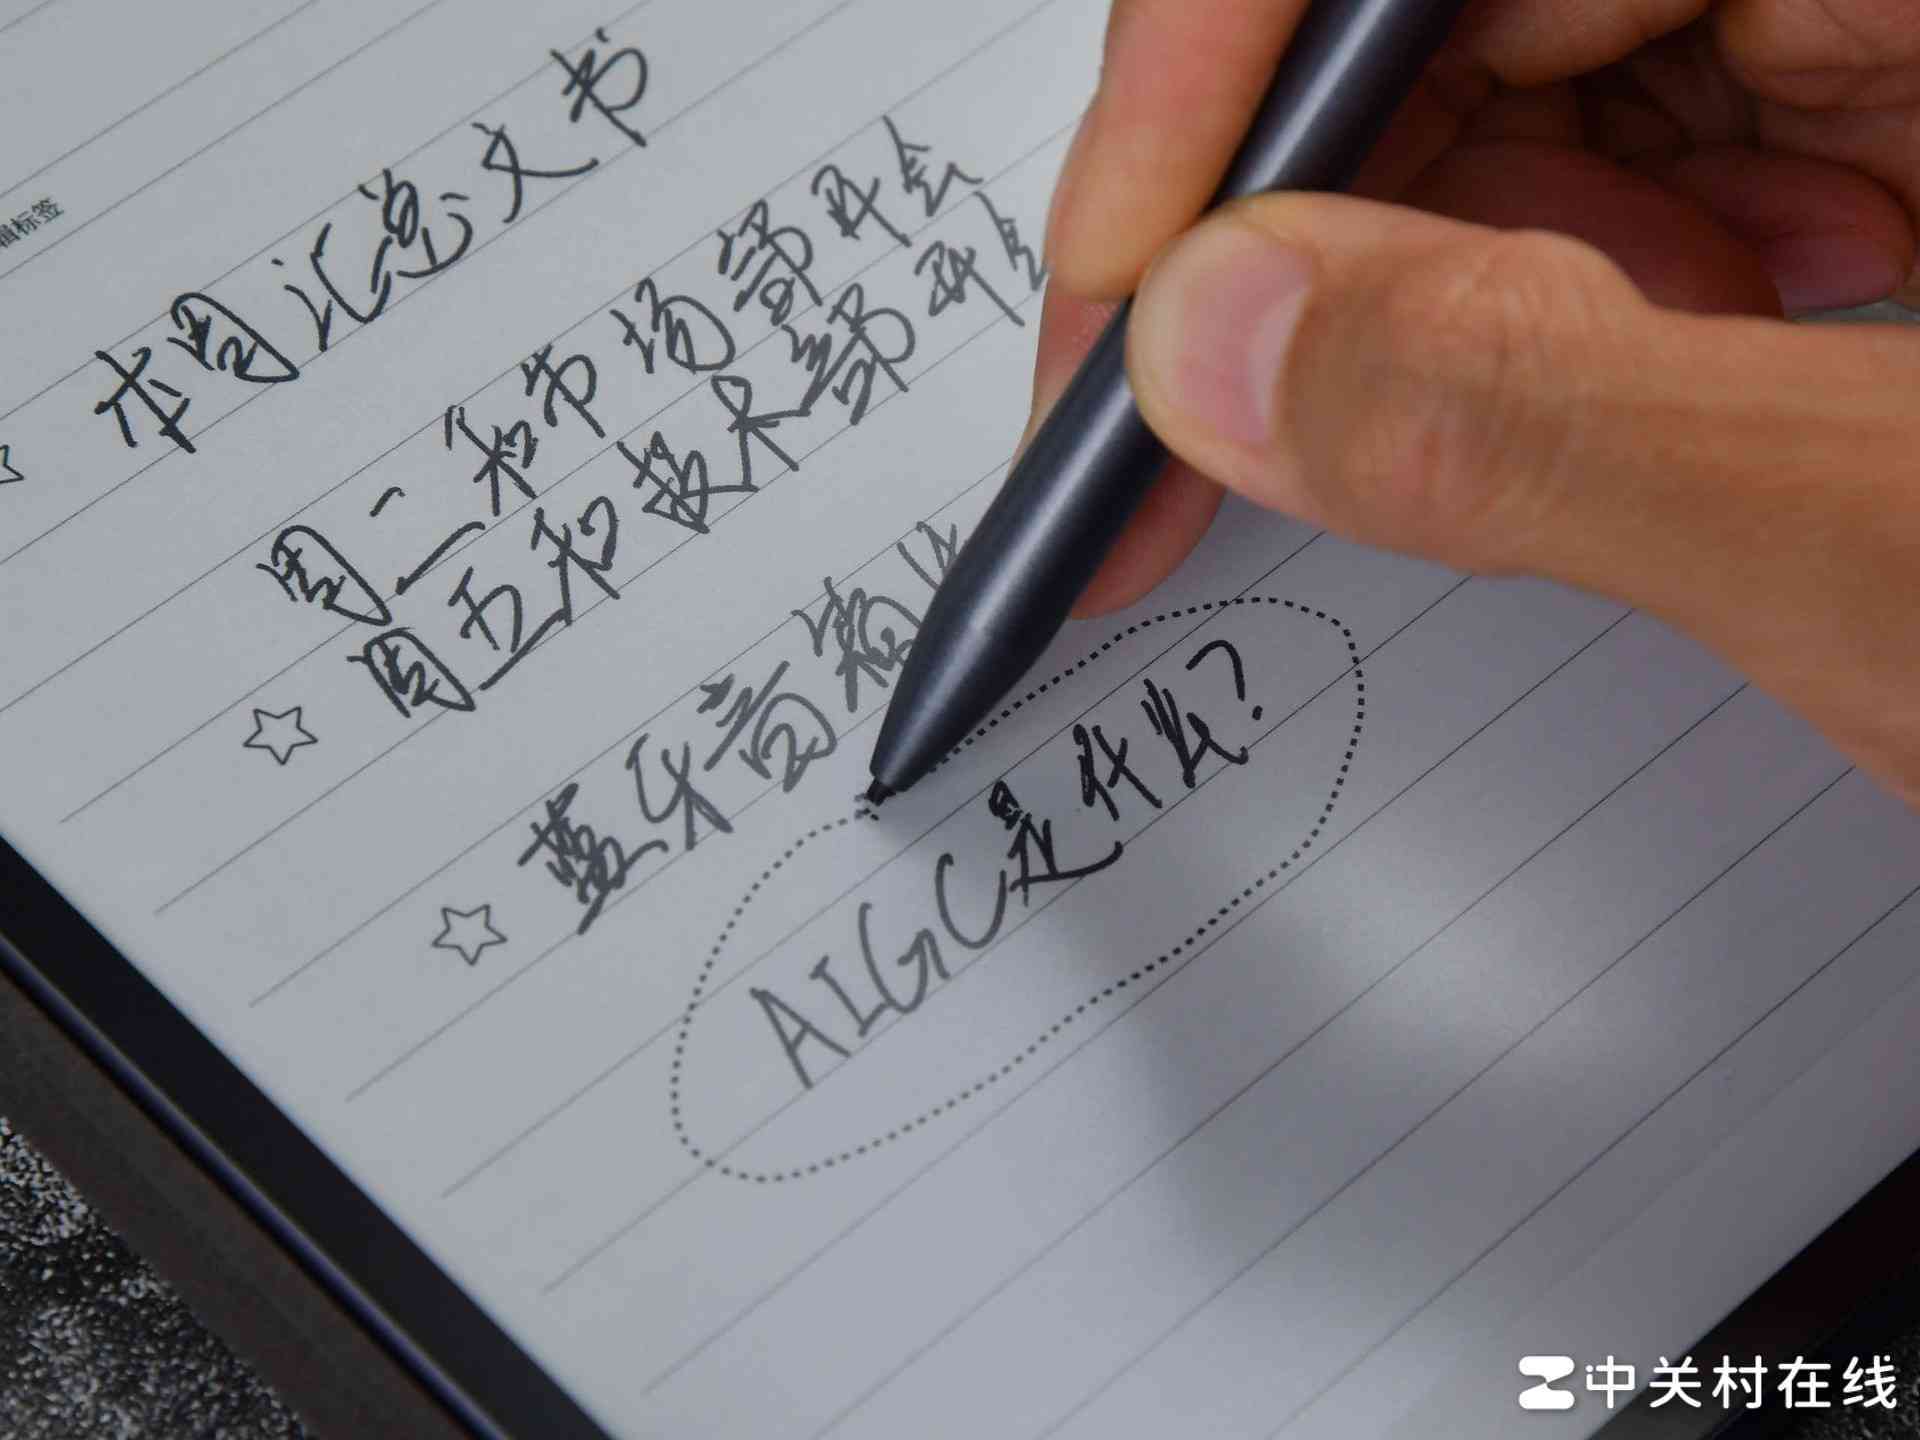 辑标签
☆ 本周汇总文书
周二和市场部开会
☆ 周五和技术部开会
☆ 蓝牙音箱
AIGC是什么?
中关村在线